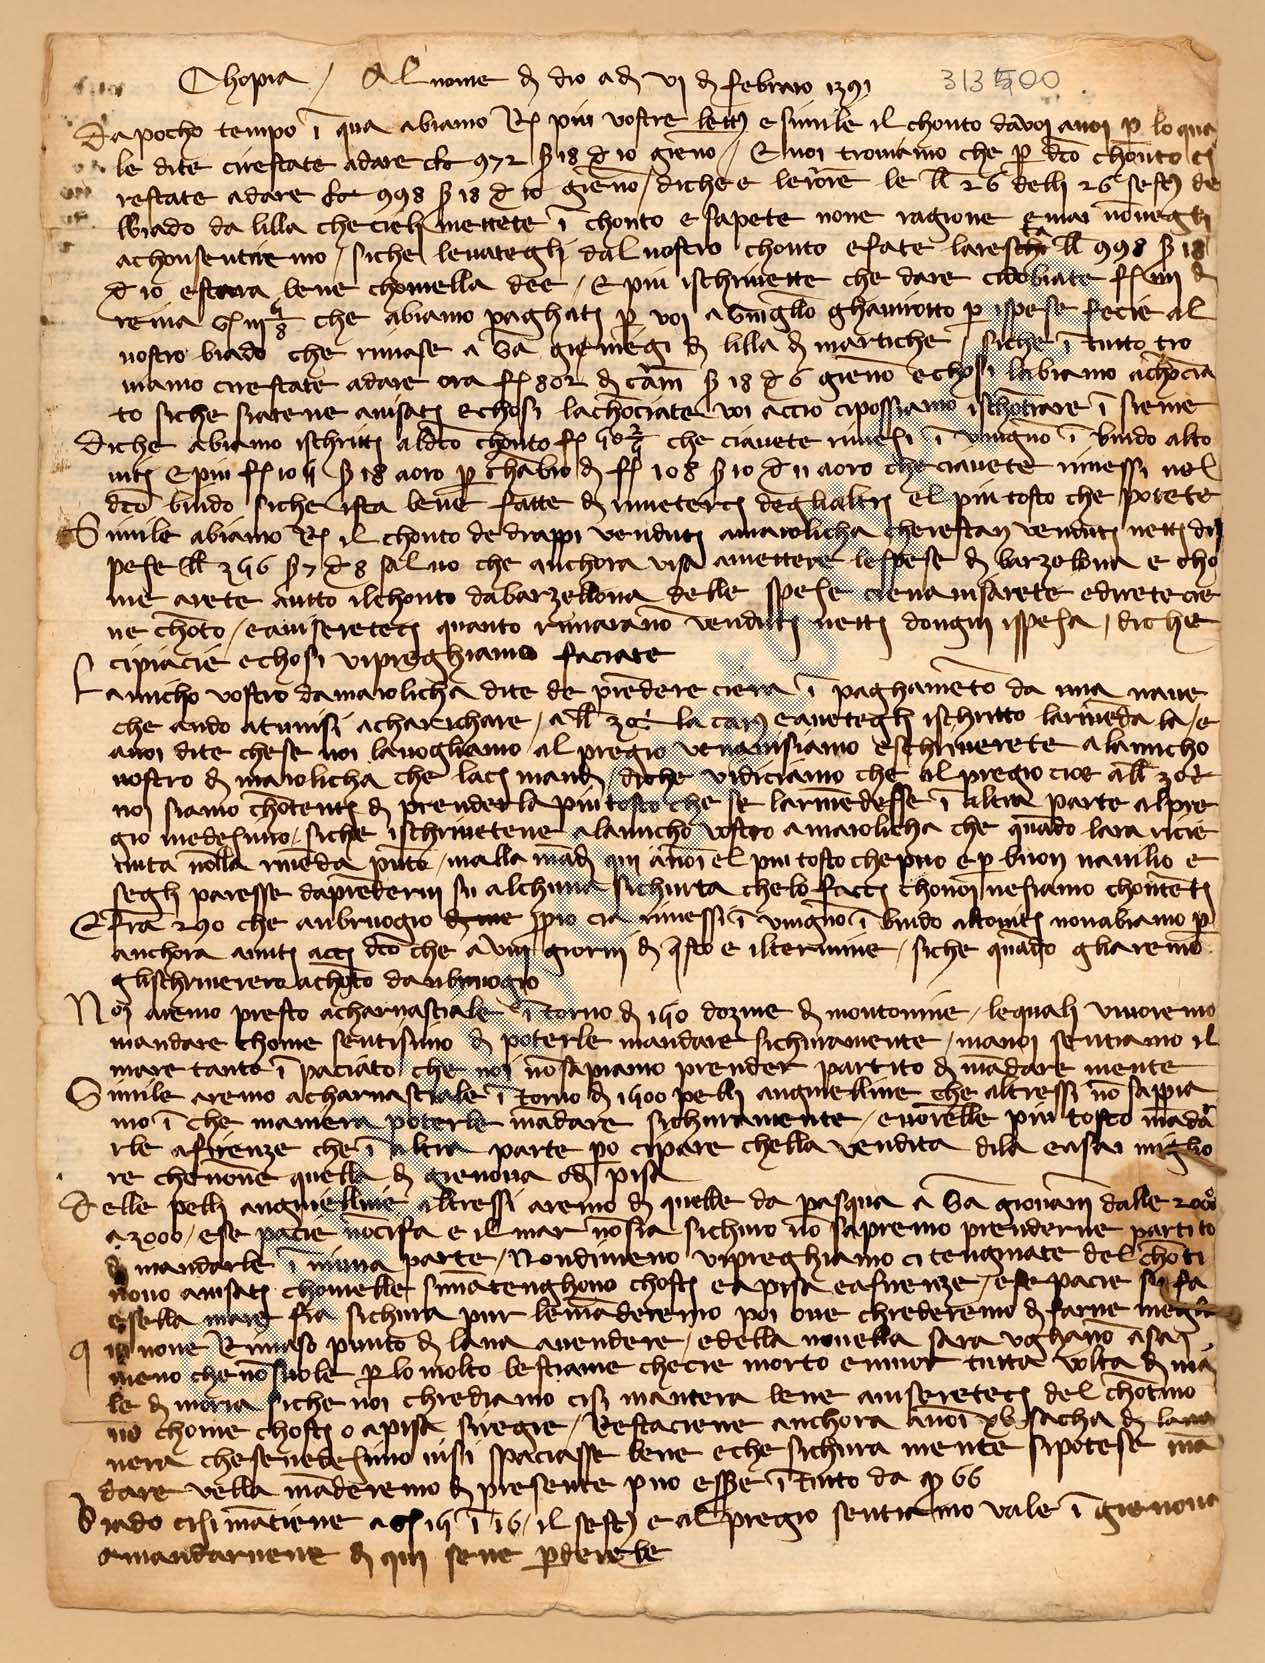 Chopia / Al nome di dio a dì vi di febraio 1391
313500
Da pocho tempo ī qua abiamo R. più vostre lett. e simile il chonto da voi a noi p lo qua
le dite ci restate a dare 972 s 18 d 10 gieno / E noi troviamo che p dco chonto ci
restate a dare 998 s 18 d 10 gieno / di che e le 26 delli 26 sest. de
biado da lilla che ci mettete ī chonto e sapete none ragione e mai
achonsentiremo / siche levategli dal nostro chonto e fate la resta 998 s 18
d 10 e stara bene chomella dee / E più ischrivette che dare ci dobiate f. di
reina che abiamo paghati p voi a ghamrotto p ispese fecie al
vostro biado che rimase a di lilla di martiche / siche ī tutto tro
viamo ci restate a dare ora f. 802 di s 18 d 6 gieno e chosi labiamo achōcia
to siche siatene avisati e chosi lachōciate voi accio ci possiamo ischōtrare ī sieme
Di che abiamo ischritti al dco chonto f. che ci avete rimesi ī vingnō ī bindo alto
viti E più f. s 18 a oro p chābio di f. 108 s 10 d 11 a oro che ci avete rimessi nel
dco bindo siche ista bene fatte di rimeterci deglialtri el più tosto che potete
Simile abiamo R. il chonto de drappi venduti a maiolicha che restan venduti netti di
pese s 7 d 8 salvo che anchora visa a mettere le spese di barzelona e cho
me arete autto il chonto da barzellona delle spese cie na visarete e diretecie
ne chōto / e aviseretecj quanto rimarano venduti netti dongni ispesa / di che
ci piacie e chosi vi preghiamo faciate
Lamicho vostro da maiolicha dite de prēdere ciera ī paghamēto da una nave
che ando a tunisi a charichare / a la car. e avetegli ischritto la rimēda la / e
a noi dite che se noi la vogliamo al pregio ve navisiamo e schriverete alamicho
vostro di maiolicha che laci mandi / di che vi diciamo che al pregio cioe a
noi siamo chōtenti di prenderla più tosto che se la rimēdesse ī altra parte al pre
gio medesimo / siche ischrivetene alamicho vostro a maiolicha che quādo lara ricie
vuta nolla rivēda pūto / malla mādi qui a noi el più tosto che può e p buon navilio e
segli paresse da prēdervi su alchuna sichurta che lo facci cho noi ne siamo chōtēti
E frā 290 che anbruogio propio cia rimessi ī vingnō ī bindo altoviti nonabiamo p
anchora avuti dco che a giorni di qsto e il termine / siche quādo gli aremo
gli schriverero a chōto danbruogio
Noi aremo presto a charnasciale ī torno di dozine di montonine / lequali vivoremo
mandare chome sentisimo di poterle mandare sichuramente / ma noi sentiamo il
mare tanto ī paciato che noi nō sapiamo prender partito di mādare mente
Simile aremo a charnasciale ī torno di pelli angnelline che altressi nō sappia
mo ī che maniera poterle mādare sichuramente / e vorelle più tosto mādā
rle a firenze che ī altra parte po ci pare chella vendita di la e asai miglio
re che none quella di gienova o di pisa
Delle pelli angnelline altressi aremo di quelle da pasqua a Sā giovani dalle 2000
a 3000 / e se pacie nocifa e il mar nō sia sichuro nō sapremo prenderne partito
di mandarle ī niuna parte / Nondimeno vi preghiamo ci tengniate del chōti
novo avisati chomelle si mātenghono chosti e a pisa e a firenze / e se pacie si fa
e sella mare fia sichura pur le māderemo poi ove chrederemo di farne meglio
Qui none Rimaso punto di lana a vendere / e della novella sara ughano asai
meno che nō suole p lo molto bestiame che cie morto e muor tutta volta di ma
le di moria siche noi chrediamo ci si mantera bene aviseretecj del chōtino
vo chome chosti o a pisa si regie / Restaciene anchora a noi xv sacha di lana
nera che se vedesimo visi spaciasse bene e che sichura mente si potese mā
dare vella māderemo di presente può essere ī tutto da 66
Biado ci si mātiene a ī 16 / il sest. e al pregio sentiamo vale ī gienova
a mandarvene di qui sene pderebe